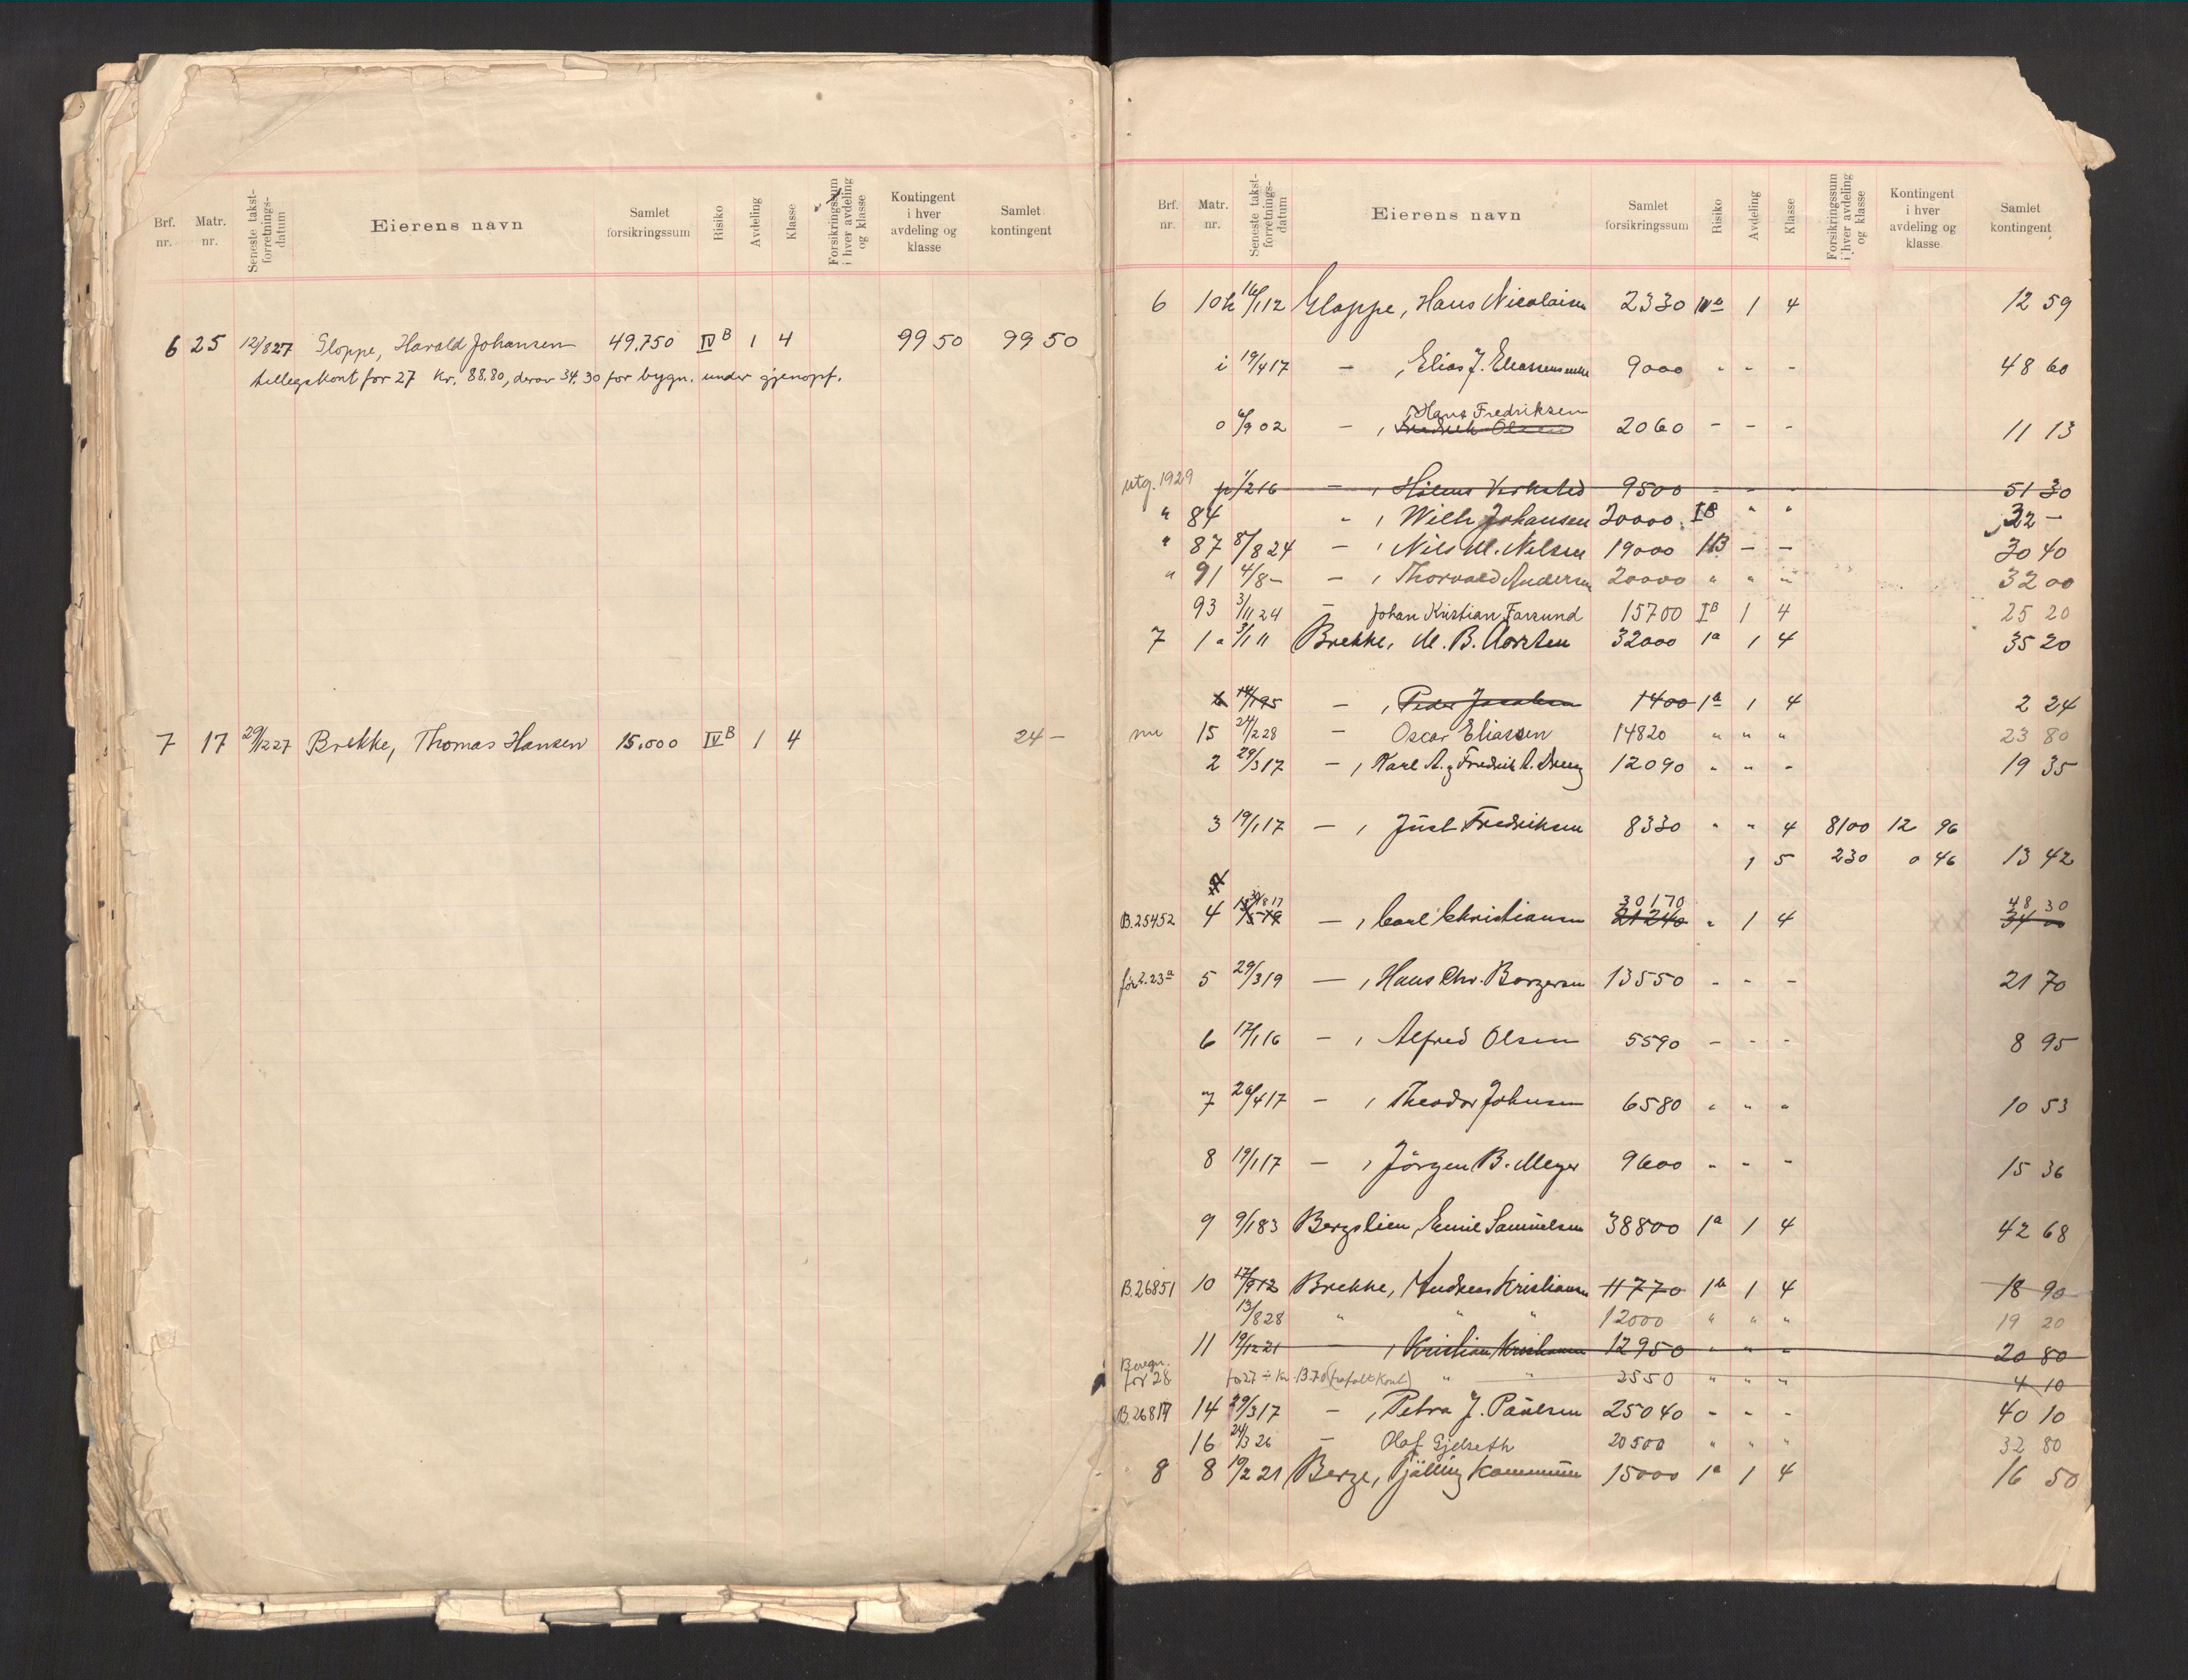 Brf. nr. Matr. nr. Seneste takst-forretnings-datum Eierens navn Samlet forsikringssum Risiko Avdeling Klasse Forsikringssum i hver avdeling og klasse Kontingent i hver avdeling og klasse Samlet kontingent
6 25 12/8 27 Gloppe, Harald Johansen 49.750 IV B 1 4 99 50 99 50
tillegskont for 27 Kr. 88.80, derav 34.30 for bygn. under gjenopf.
7 17 29/12 27 Brekke, Thomas Hansen 15.000 IV B 1 4 24 —
Brf. nr. Matr. nr. Seneste takst-forretnings-datum Eierens navn Samlet forsikringssum Risiko Avdeling Klasse Forsikringssum i hver avdeling og klasse Kontingent i hver avdeling og klasse Samlet kontingent
6 10 h 16/1 12 Gloppe, Hans Nicolaisen 2330 1 4 12 59
i 19/4 17 — , Elias J. 9000 - - - 48 60
Hans Fredriksen
o 6/9 02 — , Fredrik Olsen 2060 - - - 11 13
utg. 1929 p 1/2 16 — , 9500 - - - 51 30
" 84 " , Wilh Johansen 20000 I B " " 32 —
" 87 8/8 24 — , Nils M. Nilsen 19000 1 B — — 30 40
" 91 4/8 — — , Thorvald Andersen 20000 " " " 32 00
93 3/11 24 — Johan Kristian Farsund 15700 I B 1 4 25 20
7 1 a 3/1 11 Brekke, M. B. 32000 1a 1 4 35 20
b 14/1 95 — , Peder Jacobsen 1400 1b 1 4 2 24
15 24/2 28 — Oscar Eliassen 14820 " " " 23 80
2 29/3 17 — , Karl A. og Fredrik A. 12090 " " - 19 35
3 19/1 17 — , Just Fredriksen 8330 " " 4 8100 12 96
1 5 230 0 46 13 42
30/8 17 30170 48,30
B.25452 4 — , Carl Christiansen 21240 " 1 4 34 00
for 2. 23a 5 29/3 19 — , Hans Chr. Borgersen 13550 - - - 21 70
6 17/1 16 — , Alfred Olsen 5590 - - - 8 95
7 26/4 17 — , Theodor Johnsen 6580 " " " 10 53
8 19/1 17 — , Jörgen B. Meyer 9600 - - - 15 36
9 9/1 83 Bergslien, Emil Samuelsen 38800 1a 1 4 42 68
B.26851 10 17/9 12 Brekke, Andreas Kristiansen 11770 1b 1 4 18 90
13/8 28 " " " 12000 " " " 19 20
11 19/12 21 — , Kristian Kristiansen 12950 " " - 20 80
Beregn.
for 28 for 27 ÷ Kr. 13.70 " " 2550 " " " 4 10
B.26819 14 29/3 17 — , Petra J. Paulsen 25040 - - - 40 10
16 24/3 26 — Olaf Gjelseth 20500 " " " 32 80
8 8 19/2 21 Berge, Tjölling Kommune 15000 1a 1 4 16 50